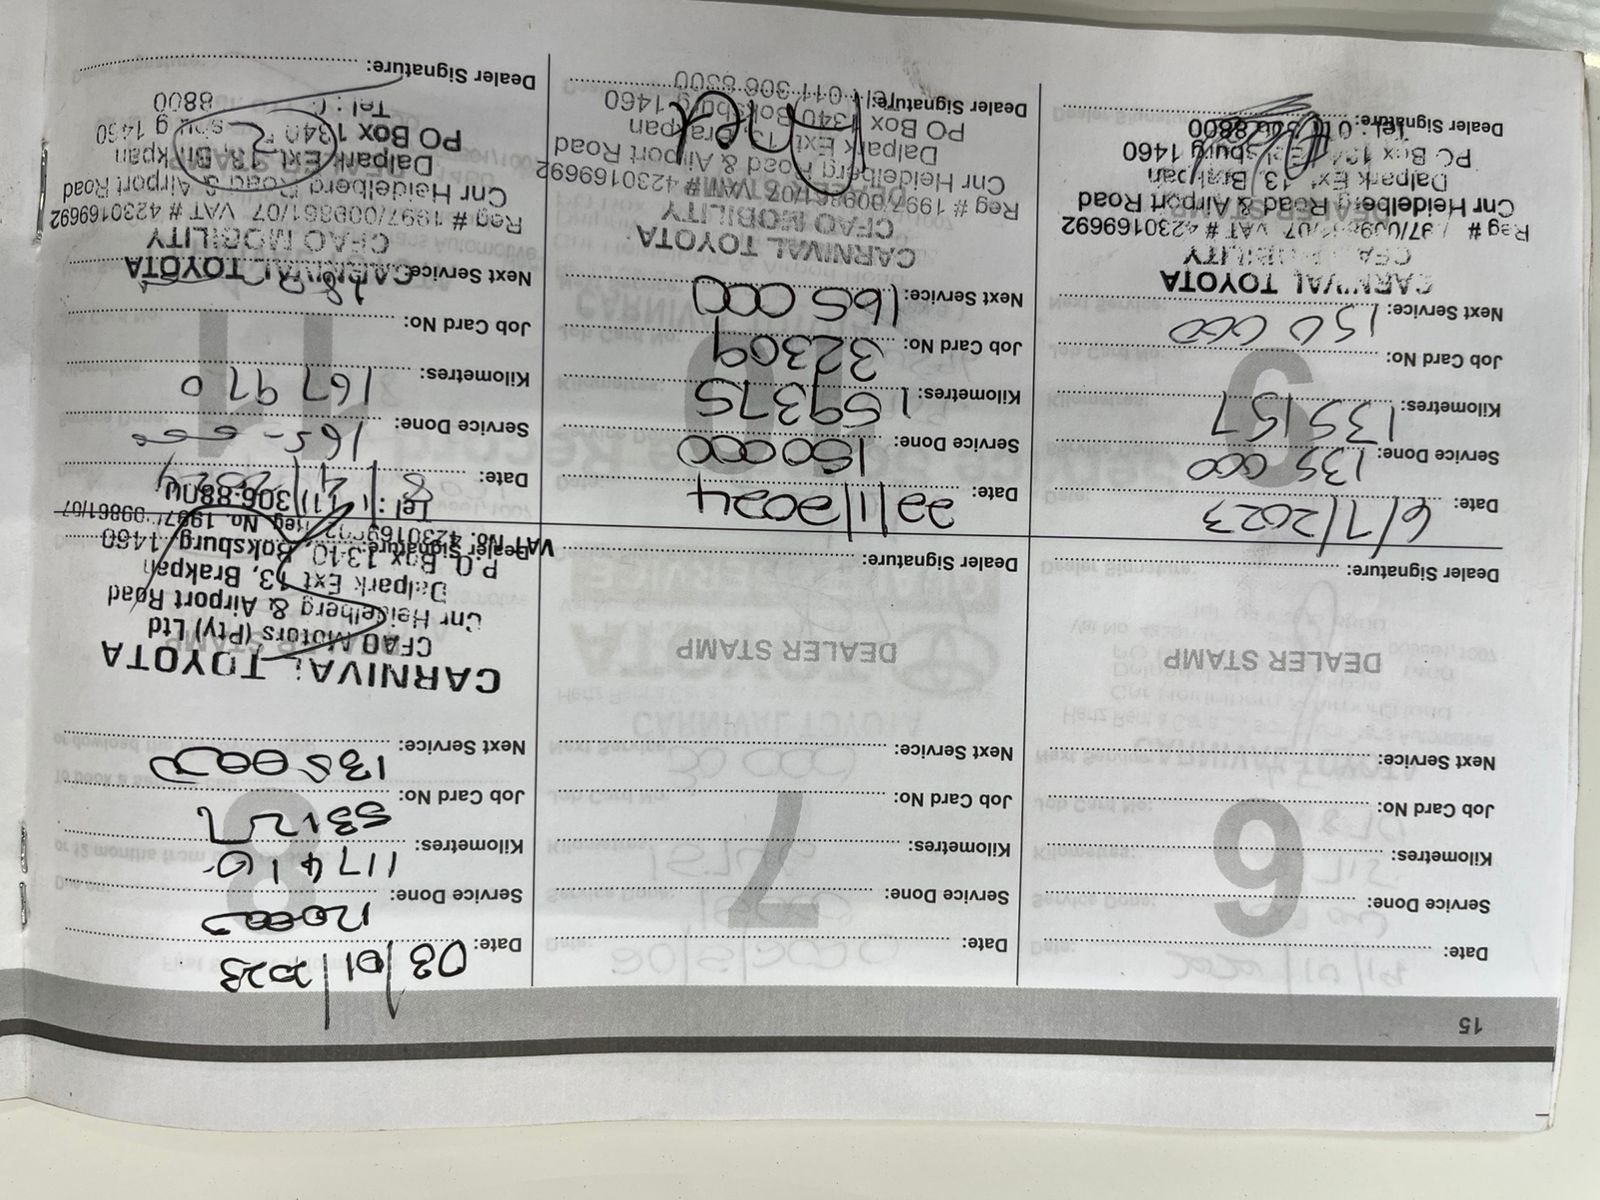 15
Date:
Service Done:
Kilometres:
Job Card No:
Next Service:
6
DEALER STAMP
Dealer Signature:
Date:
Service Done:
Kilometres:
Job Card No:
Next Service:
7
DEALER STAMP
Dealer Signature:
Date: 03/01/2023
Service Done: 120000
Kilometres: 117410
Job Card No:
Next Service: 135000
8
CARNIVAL TOYOTA
CFAO Motors (Pty) Ltd
Cnr Heidelberg & Airport Road
Dalpark Ext 13, Brakpan
P.O. Box 1340, Boksburg 1460
Dealer Signature:
Date: 6/7/2023
Service Done: 135 000
Kilometres: 135157
Job Card No:
Next Service: 150 000
9
CARNIVAL TOYOTA
DEALER STAMP
VAT # 4230169692
Cnr Heidelberg Road & Airport Road
Dalpark Ext 13, Brakpan
Dealer Signature:
Date: 22/1/2024
Service Done: 150000
Kilometres: 159375
Job Card No: 32309
Next Service: 165 000
10
CARNIVAL TOYOTA
CFAO MOBILITY
Reg # 1997/009861/07 VAT # 4230169692
Cnr Heidelberg Road & Airport Road
Dalpark Ext 13, Brakpan
PO Box 1340 Boksburg 1460
Dealer Signature:
Date: 8/4/2024
Service Done: 165 000
Kilometres: 167 970
Job Card No:
Next Service:
11
CARNIVAL TOYOTA
CFAO MOBILITY
Reg # 1997/009861/07 VAT # 4230169692
Cnr Heidelberg Road & Airport Road
Dalpark Ext 13, Brakpan
PO Box 1340
Dealer Signature: